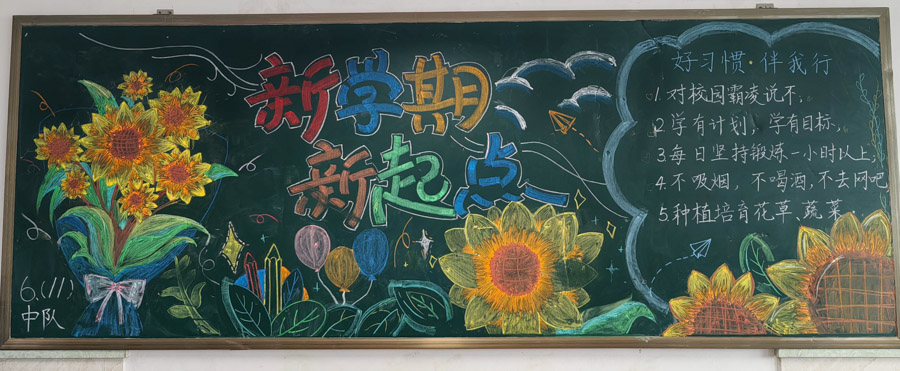 新学期
新起点
好习惯·伴我行
1.对校园霸凌说不，
2.学有计划，学有目标，
3.每日坚持锻炼一小时以上，
4.不吸烟，不喝酒，不去网吧
5.种植培育花草、蔬菜
6.(11)
中队